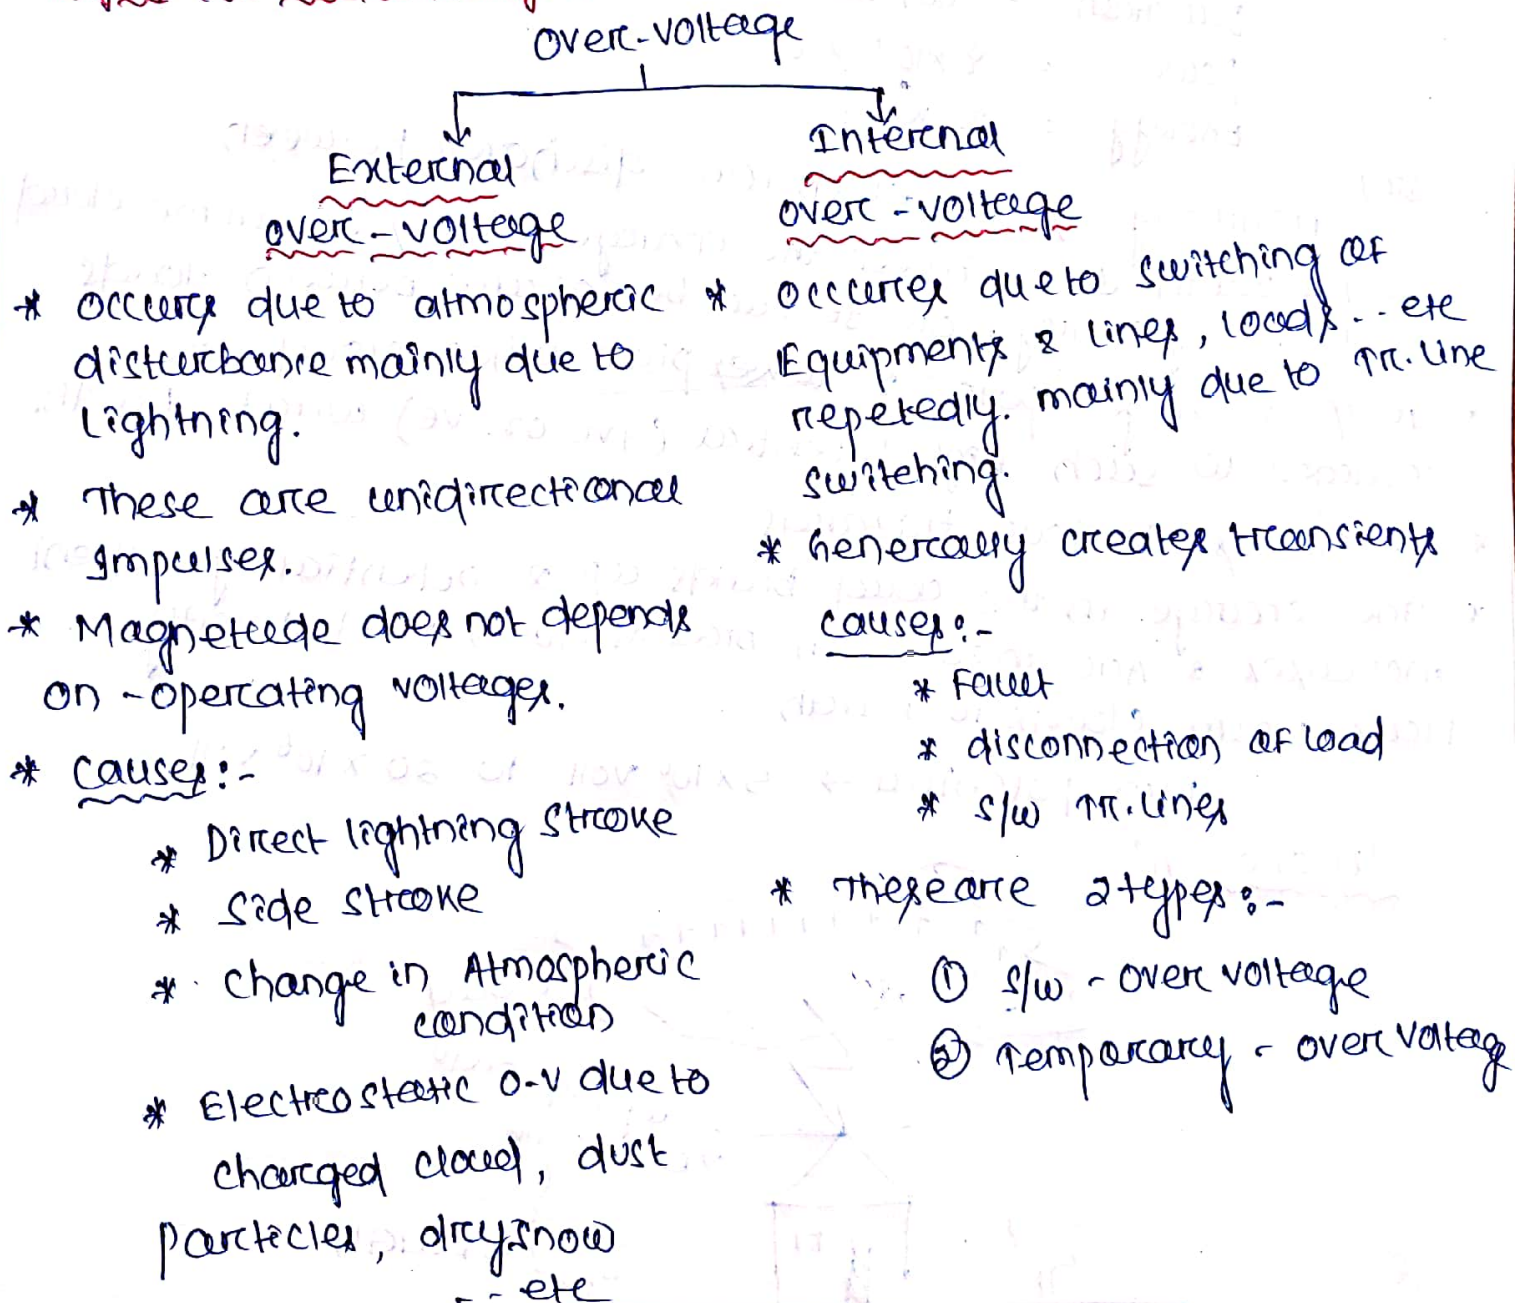 over-voltage
External
over-voltage
* occurs due to atmospheric
disturbance mainly due to
Lightning.
* These are unidirectional
Impulses.
* Magnetude does not depends
on -operating voltages.
* causes:-
* Direct lightning stroke
* Side stroke
* Change in Atmospheric
condition
* Electrostatic o-v due to
charged cloud, dust
particles, dry snow
-- etc
Internal
over-voltage
* occurres due to switching of
Equipments & lines, loads... etc
repetedly. mainly due to Tr. line
switching.
* Generally creates transients
causes:-
* Fault
* disconnection of load
* s/w Tr. lines
* These are 2 types:-
① s/w - over voltage
② Temporary - over voltag